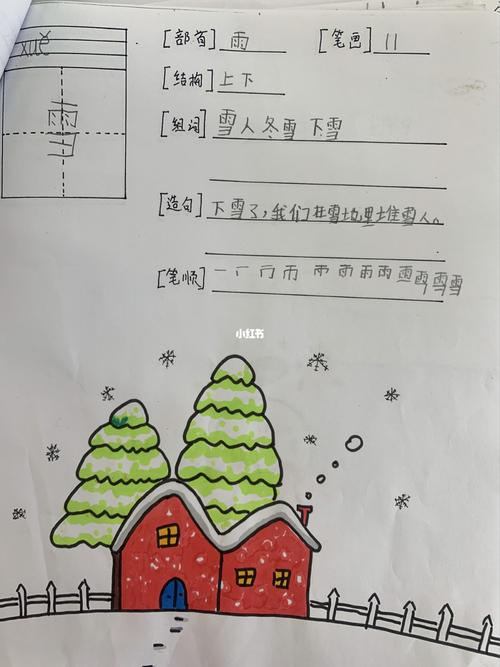 xuě
雪
[部首] 雨 [笔画] 11
[结构] 上下
[组词] 雪人 冬雪 下雪
[造句] 下雪了,我们在雪地里堆雪人。
[笔顺]
小红书